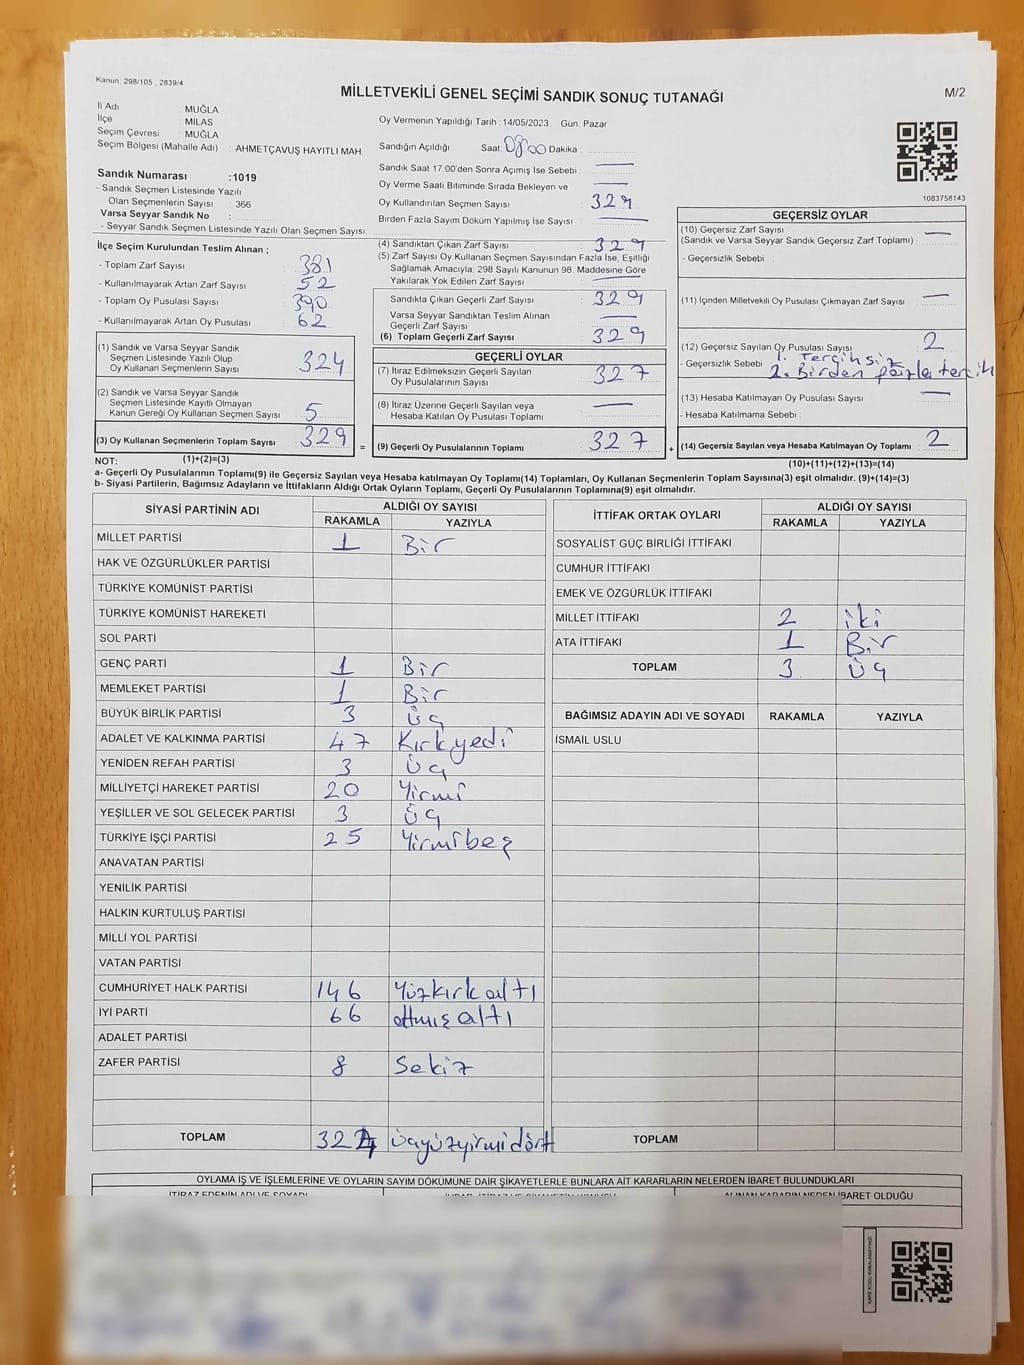 Kanun; 298/105 , 2839/4
MİLLETVEKİLİ GENEL SEÇİMİ SANDIK SONUÇ TUTANAĞI
M/2
İl Adı : MUĞLA
İlçe : MİLAS
Seçim Çevresi : MUĞLA
Seçim Bölgesi (Mahalle Adı) : AHMETÇAVUŞ HAYITLI MAH.
Sandık Numarası :1019
- Sandık Seçmen Listesinde Yazılı
Olan Seçmenlerin Sayısı : 366
Varsa Seyyar Sandık No :
- Seyyar Sandık Seçmen Listesinde Yazılı Olan Seçmen Sayısı:
İlçe Seçim Kurulundan Teslim Alınan ;
- Toplam Zarf Sayısı : 381
- Kullanılmayarak Artan Zarf Sayısı : 52
- Toplam Oy Pusulası Sayısı : 390
- Kullanılmayarak Artan Oy Pusulası : 62
(1) Sandık ve Varsa Seyyar Sandık
Seçmen Listesinde Yazılı Olup
Oy Kullanan Seçmenlerin Sayısı : 324
(2) Sandık ve Varsa Seyyar Sandık
Seçmen Listesinde Kayıtlı Olmayan
Kanun Gereği Oy Kullanan Seçmen Sayısı : 5
(3) Oy Kullanan Seçmenlerin Toplam Sayısı : 329
(1)+(2)=(3)
Oy Vermenin Yapıldığı Tarih :14/05/2023 Gün: Pazar
Sandığın Açıldığı Saat: 08 00 Dakika
Sandık Saat 17:00'den Sonra Açımış İse Sebebi :
Oy Verme Saati Bitiminde Sırada Bekleyen ve
Oy Kullandırılan Seçmen Sayısı : 329
Birden Fazla Sayım Döküm Yapılmış İse Sayısı :
(4) Sandıktan Çıkan Zarf Sayısı : 329
(5) Zarf Sayısı Oy Kullanan Seçmen Sayısından Fazla İse, Eşitliği
Sağlamak Amacıyla; 298 Sayılı Kanunun 98. Maddesine Göre
Yakılarak Yok Edilen Zarf Sayısı :
Sandıkta Çıkan Geçerli Zarf Sayısı : 329
Varsa Seyyar Sandıktan Teslim Alınan
Geçerli Zarf Sayısı :
(6) Toplam Geçerli Zarf Sayısı : 329
GEÇERLİ OYLAR
(7) İtiraz Edilmeksizin Geçerli Sayılan
Oy Pusulalarının Sayısı : 327
(8) İtiraz Üzerine Geçerli Sayılan veya
Hesaba Katılan Oy Pusulası Toplamı :
= (9) Geçerli Oy Pusulalarının Toplamı : 327
1083758143
GEÇERSİZ OYLAR
(10) Geçersiz Zarf Sayısı
(Sandık ve Varsa Seyyar Sandık Geçersiz Zarf Toplamı) :
- Geçersizlik Sebebi :
(11) İçinden Milletvekili Oy Pusulası Çıkmayan Zarf Sayısı :
(12) Geçersiz Sayılan Oy Pusulası Sayısı : 2
- Geçersizlik Sebebi : 1. Tercihsiz
2. Birden fazla tercih
(13) Hesaba Katılmayan Oy Pusulası Sayısı :
- Hesaba Katılmama Sebebi :
+ (14) Geçersiz Sayılan veya Hesaba Katılmayan Oy Toplamı : 2
(10)+(11)+(12)+(13)=(14)
NOT:
a- Geçerli Oy Pusulalarının Toplamı(9) ile Geçersiz Sayılan veya Hesaba katılmayan Oy Toplamı(14) Toplamları, Oy Kullanan Seçmenlerin Toplam Sayısına(3) eşit olmalıdır. (9)+(14)=(3)
b- Siyasi Partilerin, Bağımsız Adayların ve İttifakların Aldığı Ortak Oyların Toplamı, Geçerli Oy Pusulalarının Toplamına(9) eşit olmalıdır.
SİYASİ PARTİNİN ADI ALDIĞI OY SAYISI
RAKAMLA YAZIYLA
MİLLET PARTİSİ 1 Bir
HAK VE ÖZGÜRLÜKLER PARTİSİ
TÜRKİYE KOMÜNİST PARTİSİ
TÜRKİYE KOMÜNİST HAREKETİ
SOL PARTİ
GENÇ PARTİ 1 Bir
MEMLEKET PARTİSİ 1 Bir
BÜYÜK BİRLİK PARTİSİ 3 Üç
ADALET VE KALKINMA PARTİSİ 47 Kırkyedi
YENİDEN REFAH PARTİSİ 3 Üç
MİLLİYETÇİ HAREKET PARTİSİ 20 Yirmi
YEŞİLLER VE SOL GELECEK PARTİSİ 3 Üç
TÜRKİYE İŞÇİ PARTİSİ 25 Yirmibeş
ANAVATAN PARTİSİ
YENİLİK PARTİSİ
HALKIN KURTULUŞ PARTİSİ
MİLLİ YOL PARTİSİ
VATAN PARTİSİ
CUMHURİYET HALK PARTİSİ 146 Yüzkırkaltı
İYİ PARTİ 66 altmışaltı
ADALET PARTİSİ
ZAFER PARTİSİ 8 Sekiz
TOPLAM 324 üçyüzyirmidört
İTTİFAK ORTAK OYLARI ALDIĞI OY SAYISI
RAKAMLA YAZIYLA
SOSYALİST GÜÇ BİRLİĞİ İTTİFAKI
CUMHUR İTTİFAKI
EMEK VE ÖZGÜRLÜK İTTİFAKI
MİLLET İTTİFAKI 2 iki
ATA İTTİFAKI 1 Bir
TOPLAM 3 Üç
BAĞIMSIZ ADAYIN ADI VE SOYADI RAKAMLA YAZIYLA
İSMAİL USLU
TOPLAM
OYLAMA İŞ VE İŞLEMLERİNE VE OYLARIN SAYIM DÖKÜMÜNE DAİR ŞİKAYETLERLE BUNLARA AİT KARARLARIN NELERDEN İBARET BULUNDUKLARI
İTİRAZ EDENİN ADI VE SOYADI
ALINAN KARARIN NEDEN İBARET OLDUĞU
KARE KODU KARALAMAYINIZ!